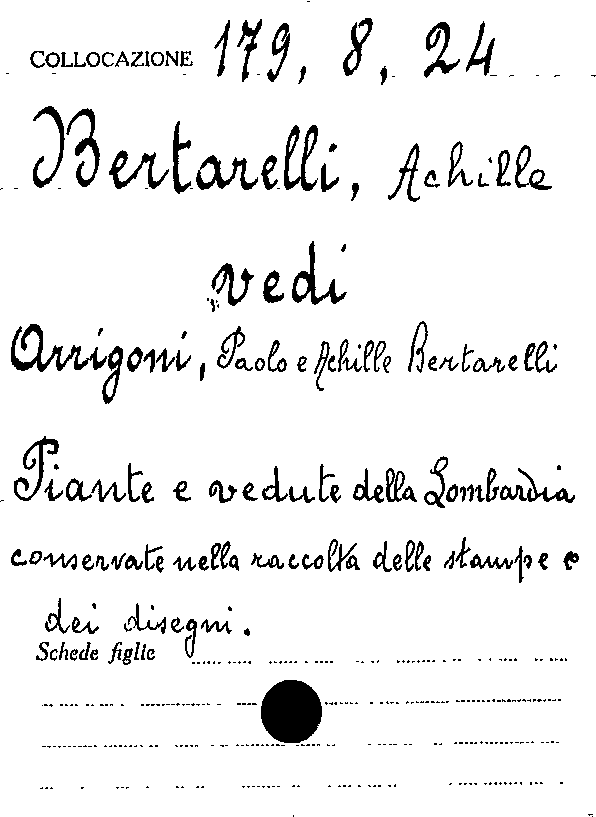 COLLOCAZIONE 179, 8, 24
Bertarelli, Achille
vedi
Arrigoni, Paolo e Achille Bertarelli
Piante e vedute della Lombardia
conservate nella raccolta delle stampe e
dei disegni.
Schede figlie